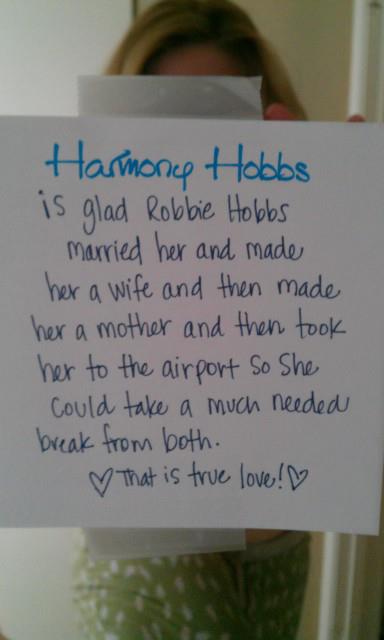 Harmony Hobbs
is glad Robbie Hobbs
married her and made
her a wife and then made
her a mother and then took
her to the airport so she
could take a much needed
break from both.
♡ That is true love! ♡